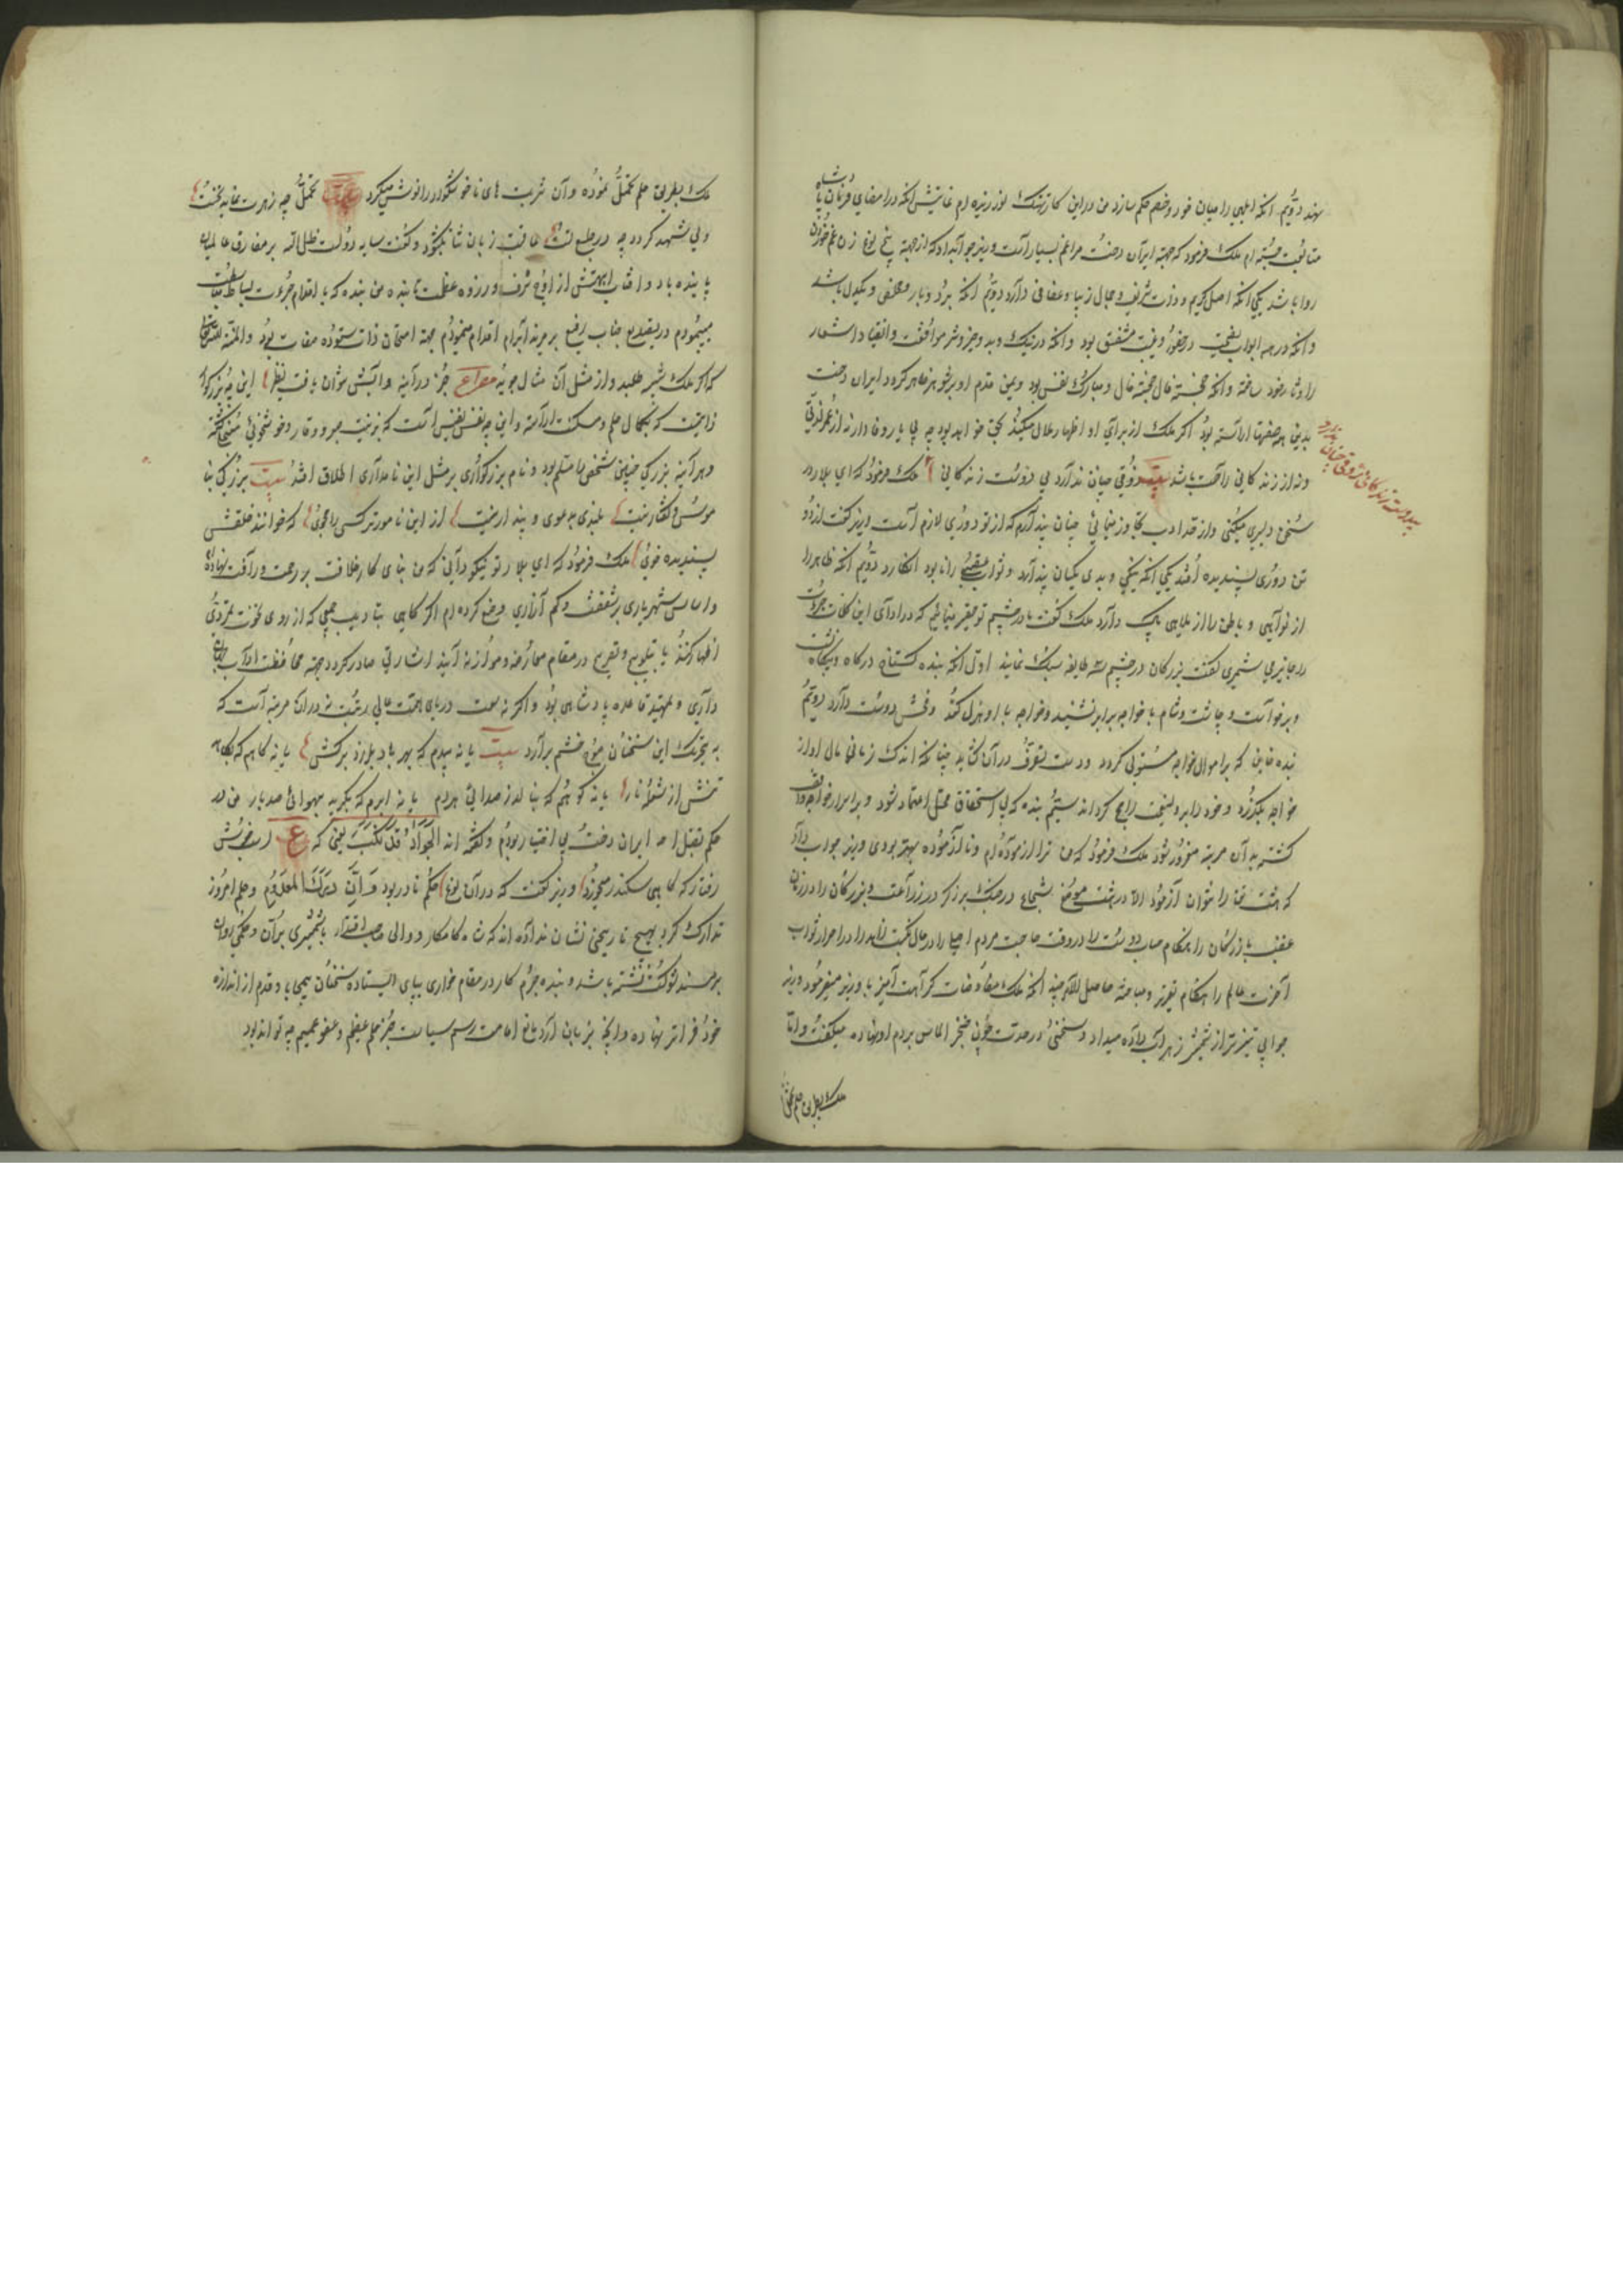 نهند دوّیم آنکه ابلهی را میان خود و خصم حکم سازد من درین کار نهنک لوز رنیزه ام غایتش آنکه در امضای فرمان پادشاه
متابعت جسته ام ملک فرمود که جهته ایران دخت مرا غم بسیار است وزیر جواب داد که از جهته پنج نوع زن غم خوردن
روا باشد یکی آنکه اصل کریم و ذات شریف و جمال زیبا و عفافی دارد دویّم آنکه بردبار و مخلص و یکدل باشد
و آنکه در همه ابواب نصیحت در حضور و غیبت مشفق بود و آنکه در نیک و بد و خیر و شر موافقت و انقیاد را شعار
را دثار خود ساخته و آنکه خجسته فال و مبارک نفس بود و یمن قدم او بر شوهر ظاهر کردد ایران دخت
بدین همه صفتها آراسته بود اکر ملک از برای او اظهار ملال میکند بحق خواهد بود چه بی یار وفادار نه از عمر لذتی
و نه از زندکانی راحت باشد بیت ذوقی چنان ندارد بی دوست زندکانی ملک فرمود که ای بلار در
سخن دلیری میکنی و از حد ادب تجاوز مینمائی چنان پندارم که از تو دوری لازم است وزیر کفت از دو
تن دوری پسندیده افتد یکی آنکه نیکی و بدی یکسان پندارد و ثواب عقبی را نابود انکارد دویم آنکه ظاهر را
از نواهی و باطن را از ملاهی پاک ندارد ملک کفت ما در چشم تو حقیر مینمائیم که در ادای این کلمات جرءت
را جایز می شمری کفت بزرکان در چشم سه طایفه سبک نمایند اوّل آنکه بنده کستاخ در کاه و بیکاه
و برخواست و چاشت و شام با خواجه برابر نشیند و خواجه با او هزل کند و فحش دوست دارد دویّم
بنده خاین که بر اموال خواجه مستولی کردد و دست تصرف در آن کشاید چنانکه اندک زمانی مال او از
خواجه بکذرد و خود را بر ولینعمت راجح کرداند سیّم بنده که بی استحقاق محل اعتماد شود و بر اسرار خواجه واقف
کشته به آن مرتبه مغرور شود ملک فرمود که من ترا آزموده ام و ناآزموده بهتر بودی وزیر جواب داد
که هشت تن را نتوان آزمود الا در هشت موضع شجاع در جنک برزکر در زراعت و بزرکان را در زمان
غضب بازرکان را بهنکام حساب دوست را در وقت حاجت مردم اصیل را در حال نکبت زاهد را در احراز ثواب
آخرت عالم را بهنکام تقریر و مباحثه حاصل الامر چند آنکه ملک مفاوضات کراهت آمیز با وزیر میفرمود وزیر
جوابی تیزتر از شمشیر زهر آب داده میداد و سخنی در حدت چون خنجر الماس بر دم او نهاده میکفت و اما
ملک بطریق حلم تحمل
بیت بیدوست زندکانی ذوقی چنان ندارد
ملک بطریق حلم تحمل نموده و آن شربت های ناخوشکوار را نوش میکرد بیت تحمّل چه زهرت نماید نخست
ولی شهد کردد چه در طبع رست عاقبت زبان ثنا بکشود و کفت سایه دولت ظل اله بر مفارق عالمیان
پاینده باد و آفتاب ابهتش از اوج شرف و ذروه عظمت تابنده من بنده که با اقدام جرءت بساط
میپیمودم و در تصدیع جناب رفیع بر مزید ابرام اقدام مینمودم جهته امتحان ذات ستوده صفات بود والمنة لله
که اکر ملک شبه طلبد و از مثل آن مثال جوید مصراع جز در آینه و آبش نتوان یافت نظیر این چه بزرکوار
ذاتیست که بکمال حلم و مسکنت آراسته و این چه نفس نفیس است که بزینت صبر و وقار و خوشخوئی متحلی کشته
و هر آینه بزرکی چنین شخص را مسلّم بود و نام بزرکواری بر مثل این نامداری اطلاق افتد بیت بزرکی بنا
موس و کفتار نیست بلندی به دعوی و پندار نیست از این نامورتر کسی را مجوئی که خوانند خلقش
پسندیده خوی ملک فرمود که ای بلار تو نیکو دانی که من بنای کار خلافت بر رحمت و رافت نهاده
و اساس شهریاری بر شفقت و کم آزاری وضع کرده ام اکر کاهی بتادیب جمعی که از روی نخوت تمرّدی
اظهار کنند یا بتلویح و تصریح در مقام معارضه و موازنه آیند اشارتی صادر کردد جهته محافظت آداب جهان
داری و تمهید قاعده پادشاهی بود و اکر نه سعت دریای همت عالی رتبت نه در آن مرتبه است که
به تحریک این سخنان موج خشم برآرد بیت یا نه بیدم که بهر باد بلرزد برکش یا نه کاهم که بکاهد
تنش از شعله نار یا نه کوهم که بنالد ز صدائی هردم یا نه ابرم که بکرید بهوائی صد بار من در
حکم بقتل ایران دخت بی اختیار بودم و کفته اند الجواد قد یکبو یعنی که ع اسب خوش
رفتار که کاهی سکندر میخورد وزیر کفت که در آن نوع حکم نادر بود فَاِنَّ النادر کالمعدوم و حلم امروز
تدارک کرد بهیچ تاریخی نشان نداده اند که شاه کامکار و والی صاحب اقتدار با شمشیری برّان و حکمی روان
بر مسند شوکت نشسته باشد و بنده مجرم کار در مقام خواری بپای ایستاده سخنان بیمحابا و قدم از اندازه
خود فراتر نهاده و آنچه بزبان آرد مانع امامت رسم سیاست جز حلم عظیم و عفو عمیم چه تواند بود